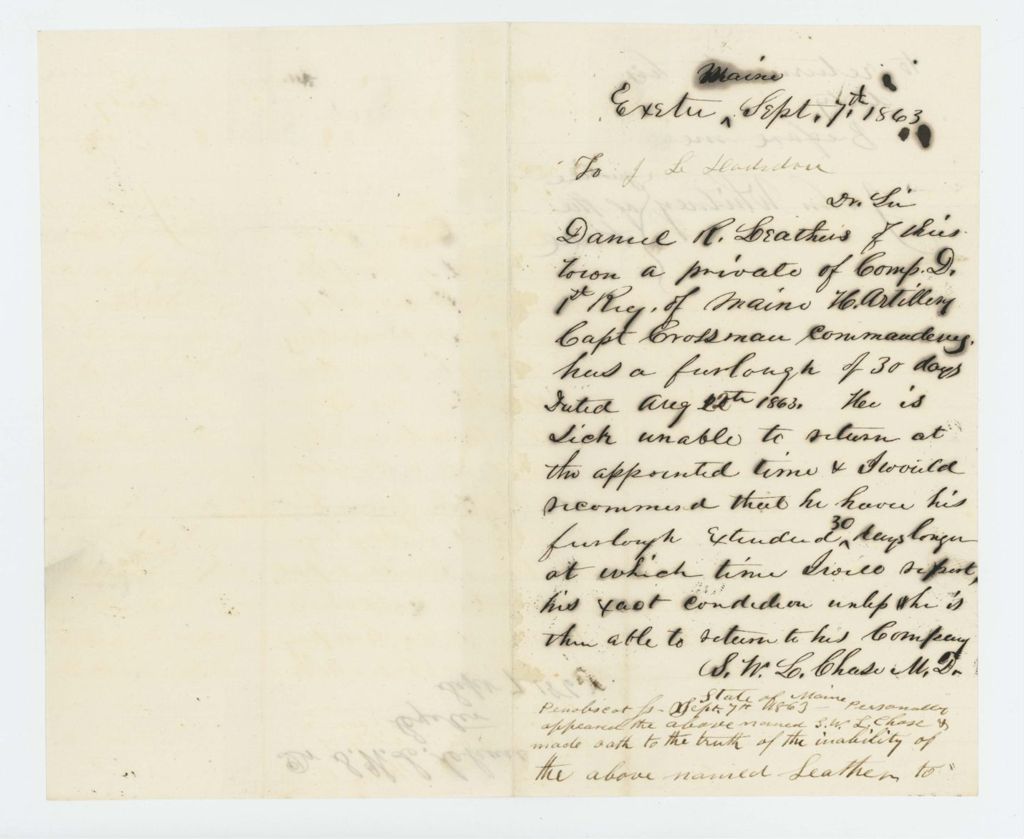 Maine
Exeter, Sept. 7th 1863
To J L Hodsdon
Dr. Sir
Daniel R. Leathers of this
town a private of Comp. D.
1st Reg. of Maine H. Artillery
Capt Crossman commandeing.
has a furlough of 30 days
Dated Aug 12th 1863. He is
sick unable to return at
the appointed time & I would
recommend that he have his
furlough extended 30 days longer
at which time I will report,
his exact condition unless he is
then able to return to his Company
S. W. L. Chase M. D.
State of Maine
Penobscot ss- Sept 7th 1863 - Personally
appeared the above named S. W. L. Chase &
made oath to the truth of the inability of
the above named Leathers to